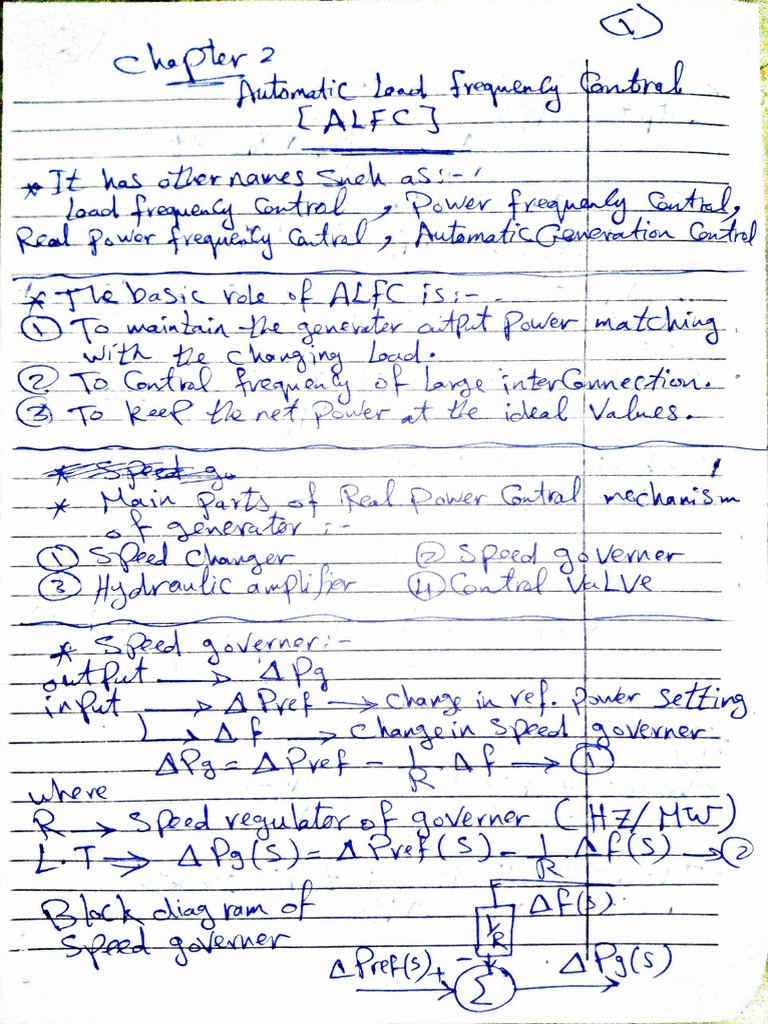 1
Chapter 2
Automatic Load frequency Control
[ALFC]
* It has other names such as:-
Load frequency Control , Power frequency Control,
Real power frequency Control , Automatic Generation Control
* The basic role of ALFC is:-
① To maintain the generator output power matching
with the changing Load.
② To Control frequency of Large interConnection.
③ To keep the net power at the ideal Values.
* Speed go
* Main parts of Real power Control mechanism
of generator :-
① Speed changer ② Speed governer
③ Hydraulic amplifier ④ Control VaLVe
* Speed governer:-
output → ΔPg
input → ΔPref → change in ref. power setting
↳ Δf → change in speed governer
ΔPg = ΔPref - 1/R . Δf → ①
where
R → Speed regulator of governer (HZ/MW)
L.T → ΔPg(S) = ΔPref(S) - 1/R Δf(S) → ②
Block diagram of
Speed governer
Δf(S)
1/R
ΔPref(s) + - ΔPg(S)
Σ